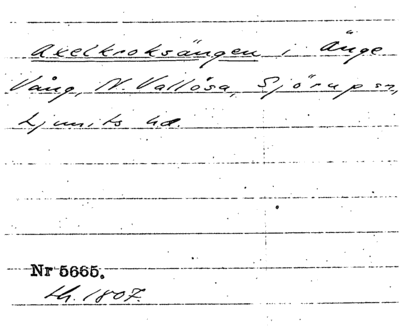 Axelkroksängen i Änge
Vång, N. Vallösa, Sjörup sn,
Ljunits hd.
Nr 5665.
Lh. 1807.